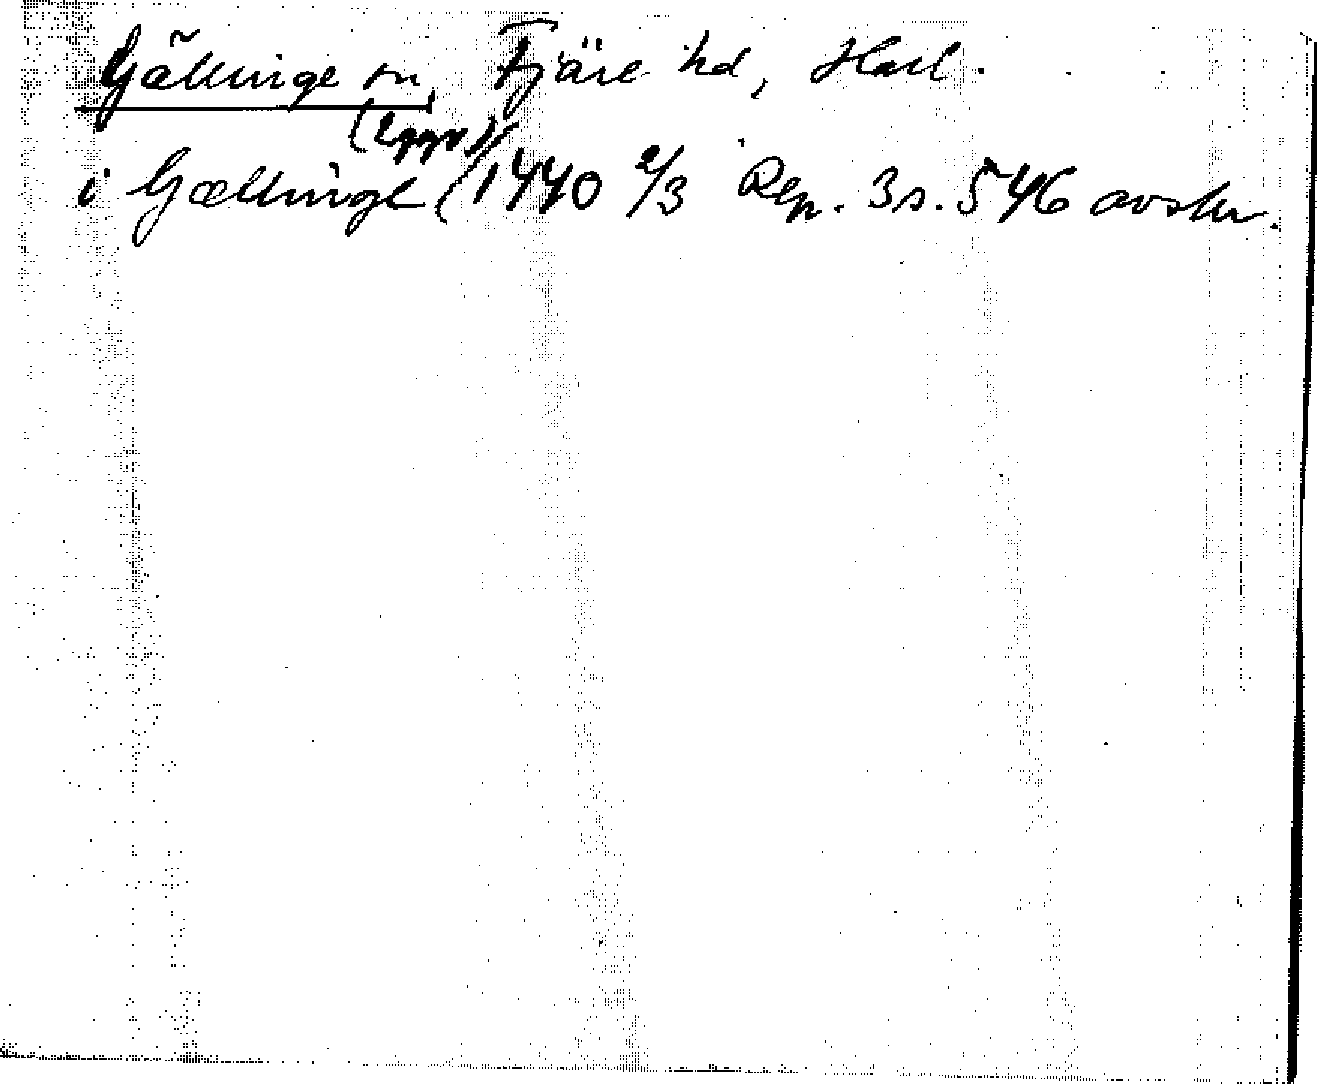 Gällinge sn, Fjäre hd, Hall.
(2ggr)
i Gællinge (1440 2/3 Rep. 3 s. 546 avskr.